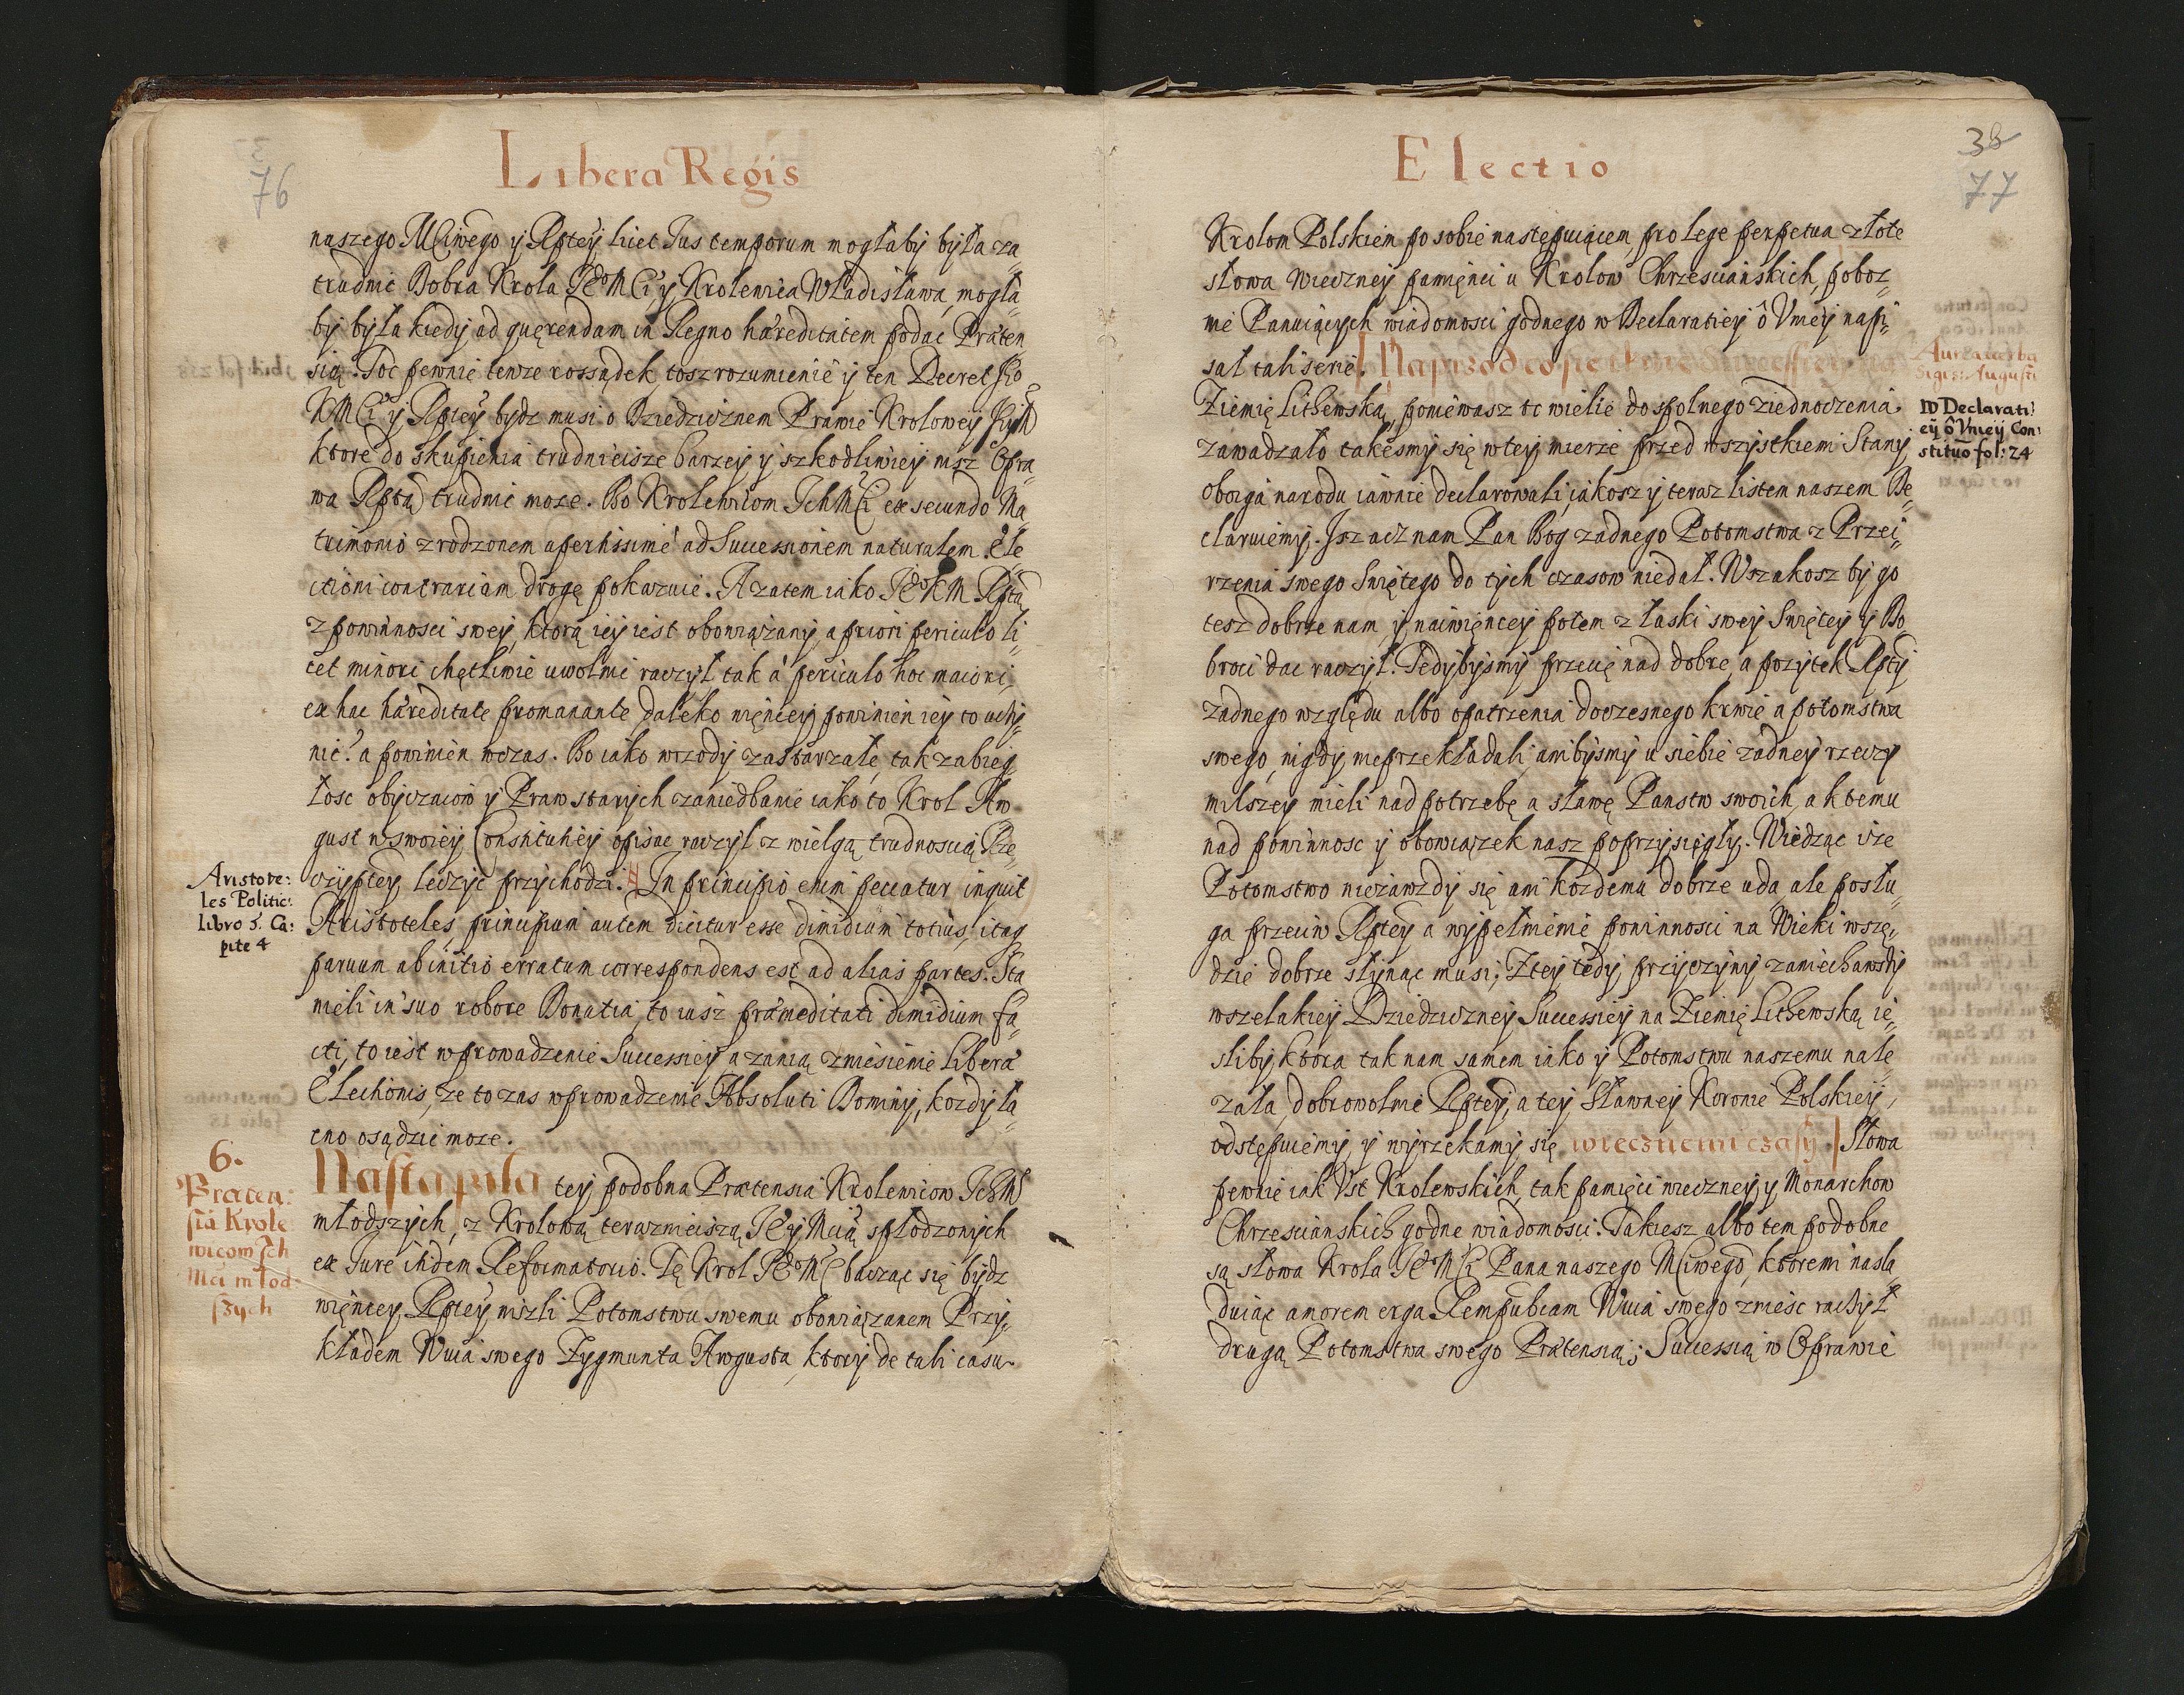 76
Libera Regis
naszego MCiwego y Rptey licet Jus temporum mogłaby była za„
trudnic Dobra Krola JEoMCi, y Krolewica Władisława, mogła„
by była kiedy ad quęrendam in Regno hæreditatem podac Præten„
sią. Toc pewnie tenze rossądek tosz rozumienie y ten Decret Jēo
KMCi y Rptey bydz musi o Dziedzicznem Prawie Krolowey JeyM
ktore do skupienia trudnieisze barzey y szkodliwiey nisz Opra„
wa Rptą trudnic moze. Bo Krolewicom IchMCi ex secundo Ma„
trimonio zrodzonem apertissimè ad Successionem naturalem Ele„
ctioni contrariam drogę pokazuie. A zatem iako JEoKM Rptą
z powinnosci swey, ktorą iey iest obowiązany, a priori periculo li„
cet minori chętliwie uwolnic raczył tak à periculo hoc maiori„
ex hac hæreditate promanante daleko więncey powinien iey to uchy„
nic? a powinien wczas. Bo iako wrzody zastarzałe, tak zabieg„
łosc obyczaiow y Praw starych zaniedbanie iako to Krol Aw„
gust w swoiey Constitutiey opisac raczył z wielgą trudnoscią Rze„
czyptey leczyc przychodzi. In principio enim peccatur inquit
Aristoteles, principium autem dicitur esse dimidium totius, itaq
paruum ab initio erratum correspondens est ad alias partes. Sta„
nęli in suo robore Donatia, to iusz præmeditati dimidium fa„
cti, to iest wprowadzenie Successiey a zanią zniesienie Libera
Electionis, ze to zas wprowadzenie Absoluti Dominy, kozdy ła„
cno osądzic moze.
Nastąpiła tey podobna Prætensia Krolewicow IchM
młodszych, z Krolową teraznieiszą JEy Mcią spłodzonych
ex Jure itidem Reformatorio. Tę Krol JEoMC bacząc się bydz
więncey Rptey niszli Potomstwu swemu obowiązanem Przy„
kładem Wuia swego Zygmunta Awgusta, ktory de tali casu
Aristote:
les Politic:
libro 5. Ca:
pite 4
6.
Præten:
sia Krole
wicom Ich
Mci młod:
szych
38
77
Electio
Krolom Polskiem po sobie następuiącem, pro lege perpetua złote
słowa wieczney pamięnci u Krolow Chrzescianskich, poboz„
nie Panuiących wiadomosci godnego w Declaratiey ô Vniey napi„
sał tali serie. Naprzod co się tknie Successiey na
Ziemię Lithewską, poniewasz to wielie do spolnego ziednoczenia
zawadzało takesmy się w tey mierze przed wszystkiemi Stany
oboigá narodu iawnie declarowali, iakosz y teraz listem naszem De„
claruiemy. Isz acz nam Pan Bog zadnego Potomstwa z Przei„
rzenia swego Swiętego do tych czasow niedał. Wszakosz by go
tesz dobrze nam y naiwięncey potem z łaski swey Swiętey y Do„
broci dac raczył. Tedybysmy przecię nad dobre, a pozytek Rpty
zadnego względu albo opatrzenia doczesnego krwie a potomstwa
swego, nigdy nieprzekładali, anibysmy u siebie zadney rzeczy
milszey mieli nad potrzebę a sławę Panstw swoich, a k temu
nad powinnosc y obowiązek nasz poprzysięgły. Wiedząc isze
Potomstwo niezawzdy się ani kozdemu dobrze uda, ale posłu„
ga przeciw Rptey a wypełnienie powinnosci na Wieki wszę„
dzie dobrze słynąc musi; Z tey tedy przyczyny zaniechawszy
wszelakiey Dziedziczney Successiey na Ziemię Lithewską ie„
sliby ktora tak nam samem iako y Potomstwu naszemu nale„
zała, dobrowolnie Rptey, a tey Sławney Koronie Polskiey,
odstępuiemy, y wyrzekamy się wiecznemi czasy. Słowa
pewnie iak Vst Krolewskich, tak pamięci wieczney, y Monarchow
Chrzescianskich godne wiadomosci. Takiesz albo tem podobne
są słowa Krola JEoMCi Pana naszego MCiwego, ktoremi nasla„
duiąc amorem erga Rempubcam Wuia swego zniesc rachył
drugą Potomstwa swego Prætensią; Successią w Oprawie
Aurea verba
Sigis: Augusti
W Declarati
ey ô Vniey Con:
stituō fol: 24